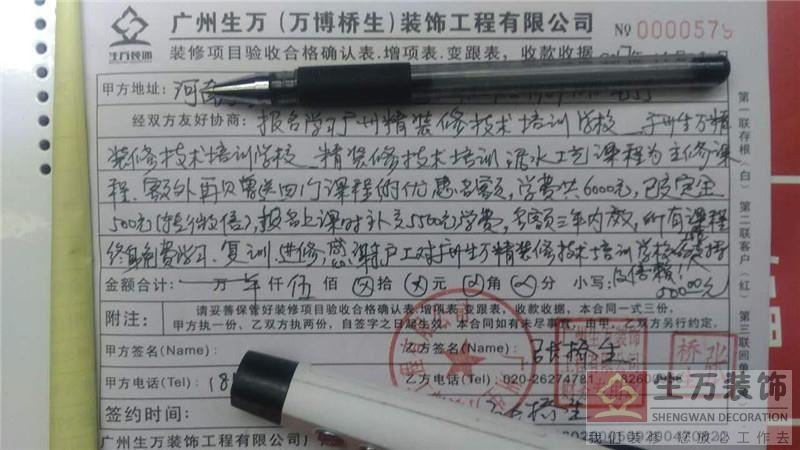 广州生万（万博桥生）装饰工程有限公司
№ 0000579
生万装饰
装修项目验收合格确认表.增项表.变跟表，收款收据
甲方地址：河南
经双方友好协商：报名学习广州精装修技术培训学校 广州生万精
装修技术培训学校 精装修技术培训 防水工艺课程为主修课
程，额外再贝曾送四门课程附优惠名额，学费共6000元，已交定金
500元(微信)，报名上课时补交5500元学费，名额三年内有效，所有课程
终身免费学习、复训、进修，感 对广州生万精装修技术培训学校 支持
及信赖！
金额合计： 万 仟 伍 佰 拾 元 角 分 小写： 500.00元
附注：
请妥善保管好装修项目验收合格确认表.增项表.变跟表，收款收据，本合同一式三份，
甲方执一份、乙双方执两份，自签字之日起生效。本合同如有未尽事宜，由甲，乙双方另行约定。
甲方签名(Name)：
乙方签名(Name)： 张桥生
甲方电话(Tel)：18
乙方电话(Tel)：020-26274781
签约时间：
广州生万装饰工程有限公司
第一联存根（白） 第二联客户（红） 第三联回单
生万装饰
SHENGWAN DECORATION
我们装修 您放心工作去